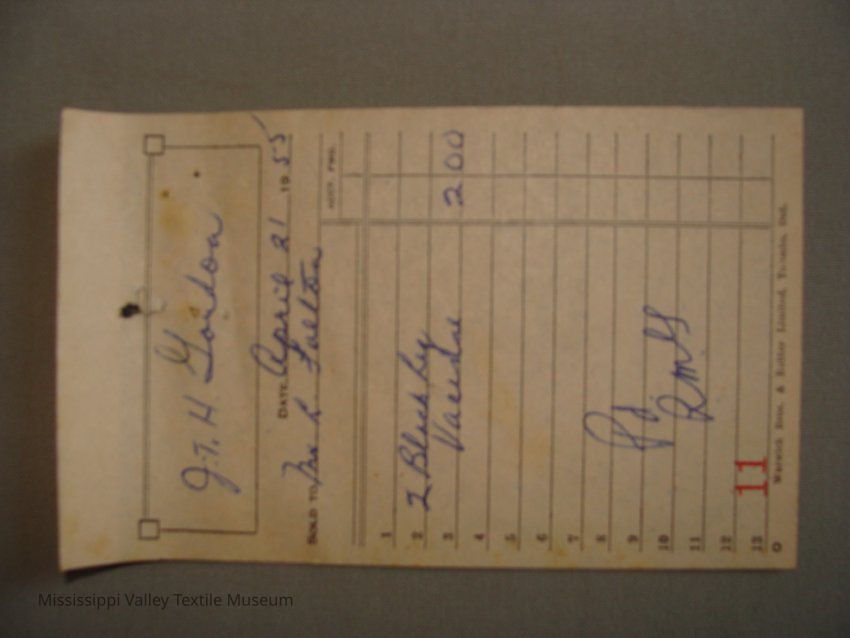 J. T. H. Gordon
DATE April 21 1955
SOLD TO Mr L. Fulton
1
2 2 Black Leg
3 Vaccine 2 00
4
5
6
7
8
9 Pd.
10 RMG
11
12
13
11
Warwick Bros. & Rutter Limited, Toronto, Ont.
Mississippi Valley Textile Museum